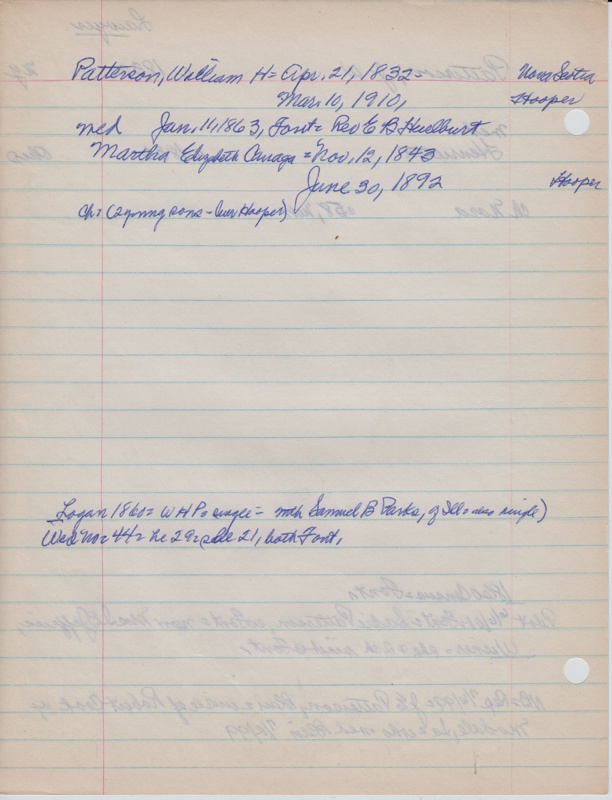 Patterson, William H = Apr. 21, 1832 = Nova Scotia
Mar. 10, 1910, Hooper
med Jan. 11, 1863, Font = Rev E B Hurlburt
Martha Elizabeth = Nov. 12, 1843
June 30, 1892 Hooper
Ch: (2 young sons - bur Hooper)
Logan 1860 = W H P = single = with Samuel B Parks, of Ill = also single)
Wed No = 44 = he 29 = she 21, both Font,